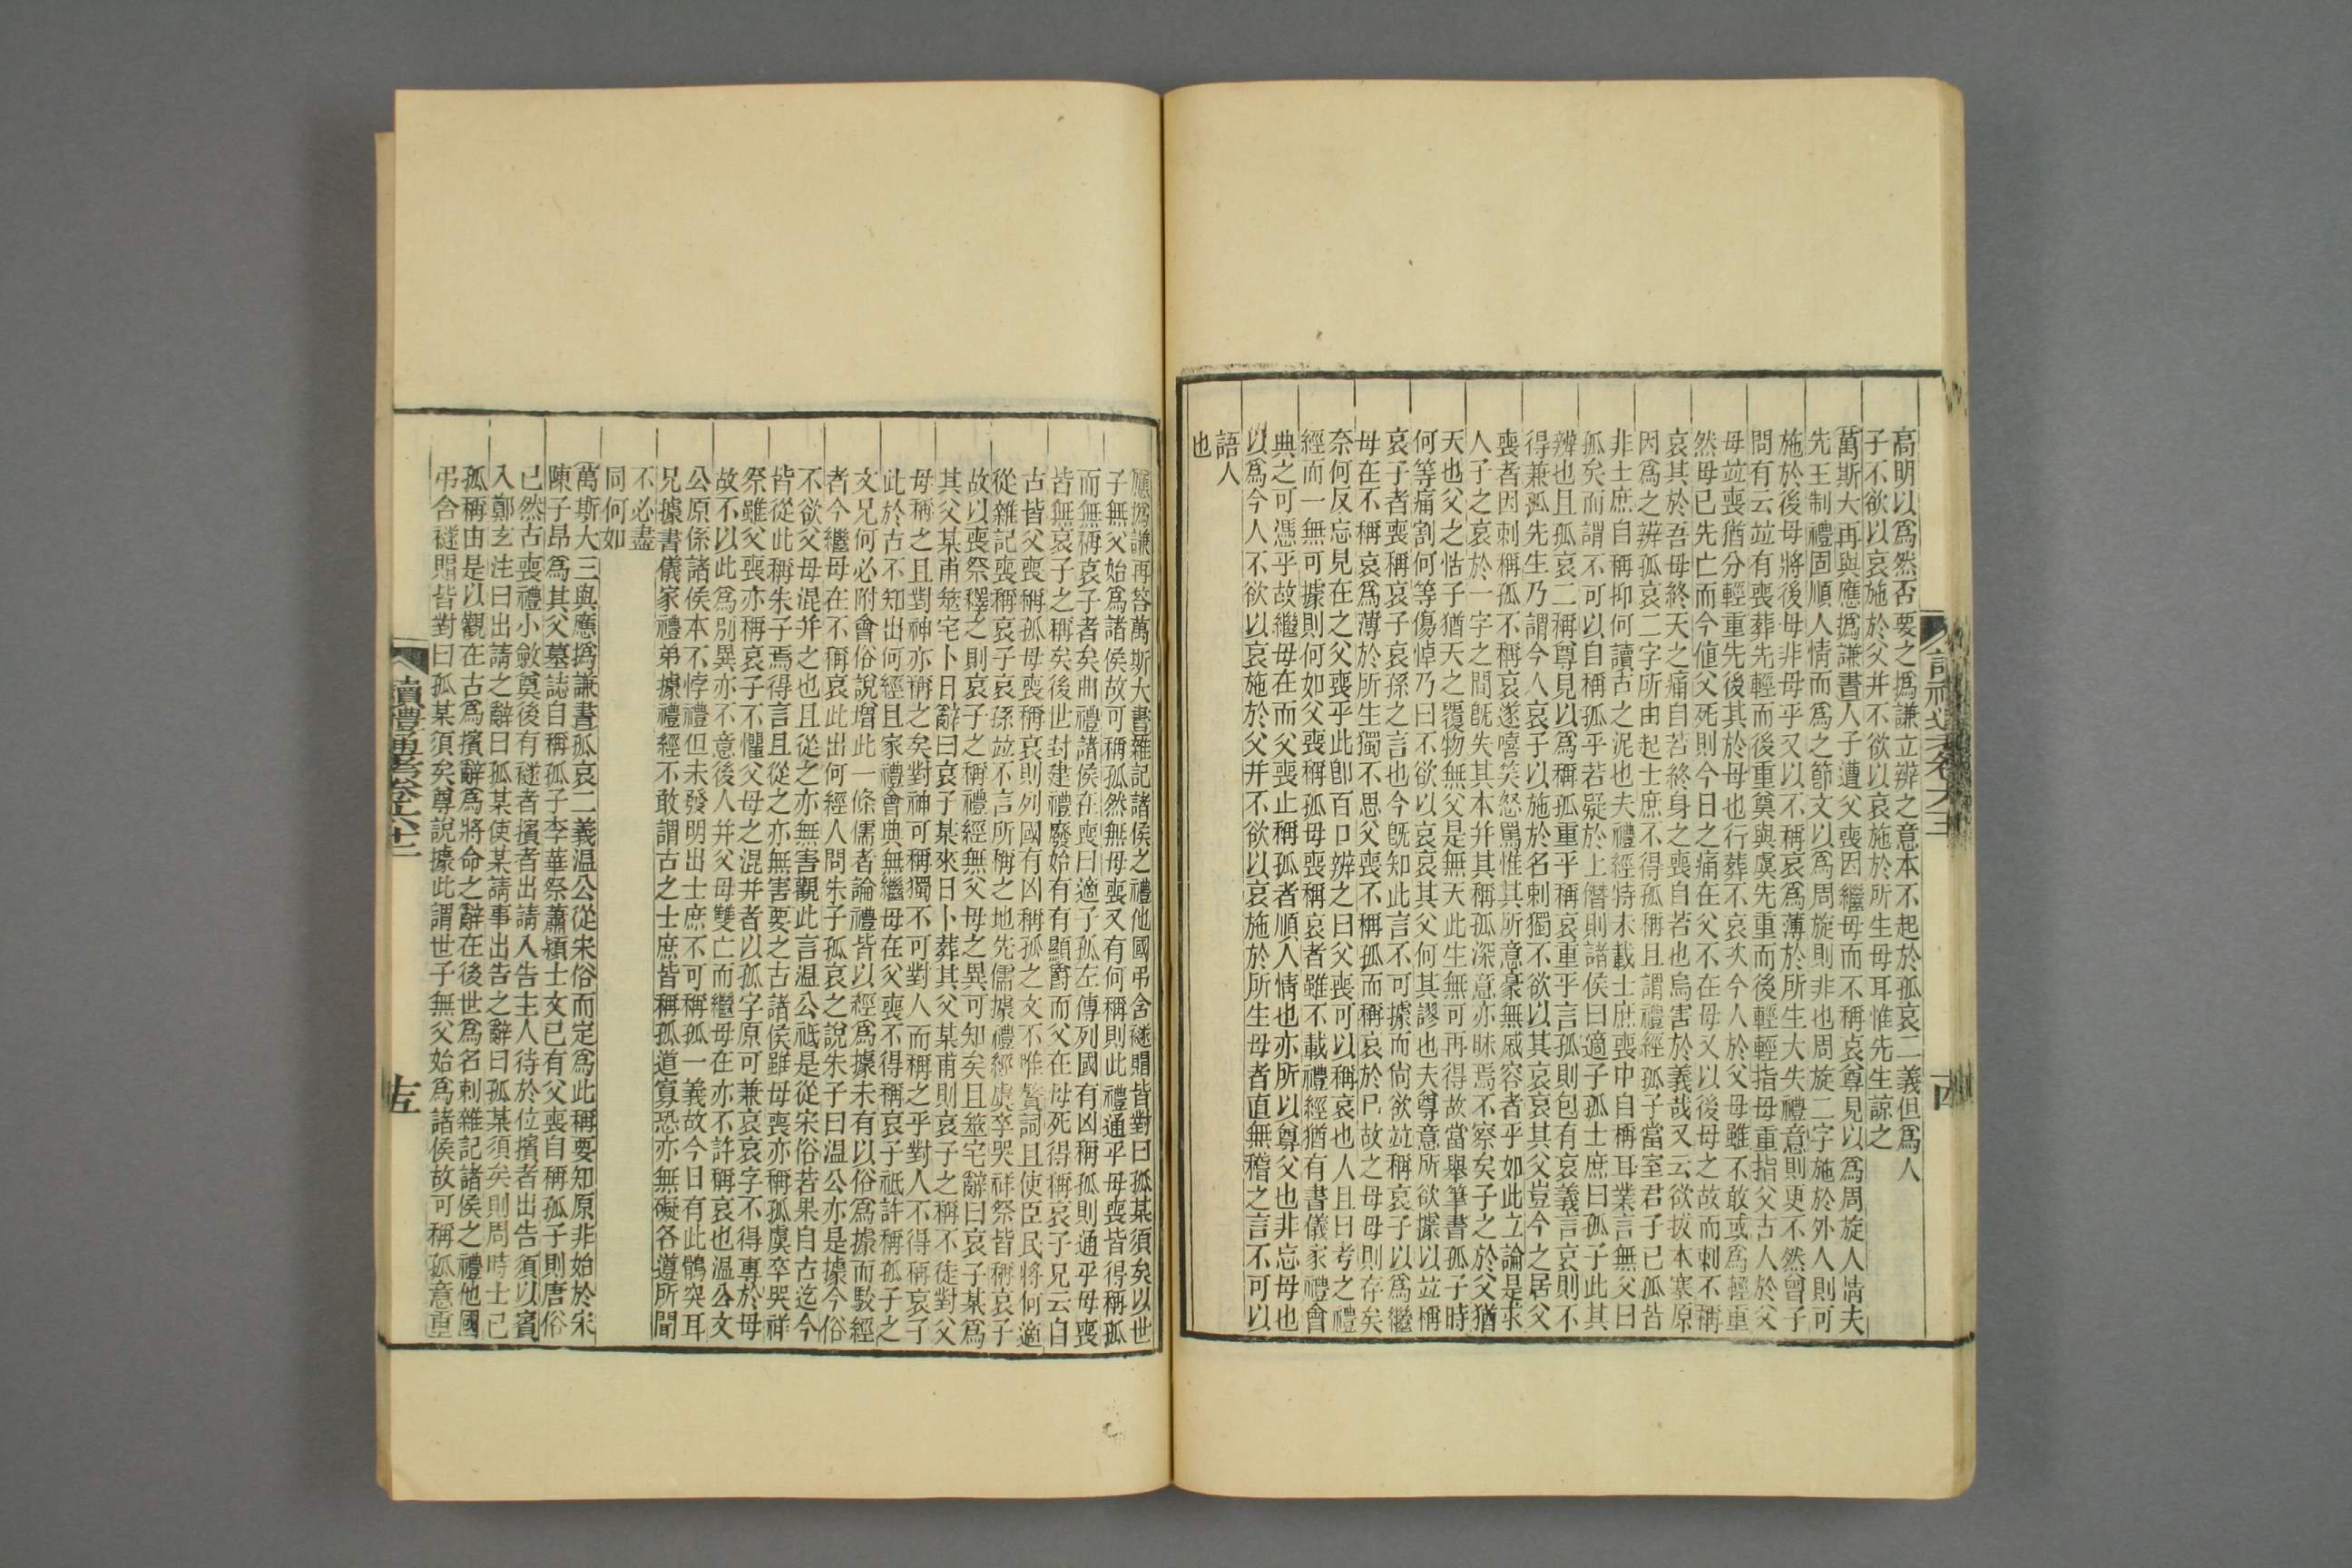 高明以爲然否要之撝謙立辨之意本不起於孤哀二義但爲人
子不欲以哀施於父并不欲以哀施於所生母耳惟先生諒之
萬斯大再與應撝謙書人子遭父喪因繼母而不稱哀尊見以爲周旋人情夫
先王制禮固順人情而爲之節文以爲周旋則非也周旋二字施於外人則可
施於後母將後母非母乎又以不稱哀爲薄於所生大失禮意則更不然曾子
問有云竝有喪葬先輕而後重奠與虞先重而後輕輕指母重指父古人於父
母竝喪猶分輕重先後其於母也行葬不哀次今人於父母雖不敢或爲輕重
然母已先亡而今値父死則今日之痛在父不在母又以後母之故而刺不稱
哀其於吾母終天之痛自若終身之喪自若也烏害於義哉又云欲拔本塞原
因爲之辨孤哀二字所由起士庶不得孤稱且謂禮經孤子當室君子已孤皆
非士庶自稱抑何讀古之泥也夫禮經特未載士庶喪中自稱耳業言無父曰
孤矣而謂不可以自稱孤乎若疑於上僭則諸侯曰適子孤士庶曰孤子此其
辨也且孤哀二稱尊見以爲稱孤重乎稱哀重乎言孤則包有哀義言哀則不
得兼孤先生乃謂今人哀子以施於名刺獨不欲以其哀哀其父豈今之居父
喪者因刺稱孤不稱哀遂嘻笑怒罵惟其所意豪無戚容者乎如此立論是求
人子之哀於一字之間旣失其本并其稱孤深意亦昧焉不察矣子之於父猶
天也父之怙子猶天之覆物無父是無天此生無可再得故當舉筆書孤子時
何等痛割何等傷悼乃曰不欲以哀哀其父何其謬也夫尊意所欲據以竝稱
哀子者喪稱哀子哀孫之言也今旣知此言不可據而尙欲竝稱哀子以爲繼
母在不稱哀爲薄於所生獨不思父喪不稱孤而稱哀於已故之母母則存矣
奈何反忘見在之父喪乎此卽百口辨之曰父喪可以稱哀也人且曰考之禮
經而一無可據則何如父喪稱孤母喪稱哀者雖不載禮經猶有書儀家禮會
典之可憑乎故繼母在而父喪止稱孤者順人情也亦所以尊父也非忘母也
以爲今人不欲以哀施於父并不欲以哀施於所生母者直無稽之言不可以
語人
也
應撝謙再答萬斯大書雜記諸侯之禮他國弔含襚賵皆對曰孤某須矣以世
子無父始爲諸侯故可稱孤然無母喪又有何稱則此禮通乎母喪皆得稱孤
而無稱哀子者矣曲禮諸侯在喪曰適子孤左傳列國有凶稱孤則通乎母喪
皆無哀子之稱矣後世封建禮廢始有有顯爵而父在母死得稱哀子兄云自
古皆父喪稱孤母喪稱哀則列國有凶稱孤之文不唯贅詞且使臣民將何適
從雜記喪稱哀子哀孫竝不言所稱之地先儒據禮經虞卒哭祥祭皆稱哀子
故以喪祭釋之則哀子之稱禮經無父母之異可知矣且筮宅辭曰哀子某爲
其父某甫筮宅卜日辭曰哀子某來日卜葬其父某甫則哀子之稱不徒對父
母稱之且對神亦稱之矣對神可稱獨不可對人而稱之乎對人不得稱哀子
此於古不知出何經且家禮會典無繼母在父喪不得稱哀子祗許稱孤子之
文兄何必附會俗說增此一條儒者論禮皆以經爲據未有以俗爲據而駁經
者今繼母在不稱哀此出何經人問朱子孤哀之說朱子曰温公亦是據今俗
不欲父母混并之也且從之亦無害觀此言温公祗是從宋俗若果自古迄今
皆從此稱朱子焉得言且從之亦無害要之古諸侯雖母喪亦稱孤虞卒哭祥
祭雖父喪亦稱哀子不懼父母之混并者以孤字原可兼哀哀字不得專於母
故不以此爲別異亦不意後人并父母雙亡而繼母在亦不許稱哀也温公文
公原係諸侯本不悖禮但未發明出士庶不可稱孤一義故今日有此鶻突耳
兄據書儀家禮弟據禮經不敢謂古之士庶皆稱孤道寡恐亦無礙各遵所聞
不必盡
同何如
萬斯大三與應撝謙書孤哀二義温公從宋俗而定爲此稱要知原非始於宋
陳子昂爲其父墓誌自稱孤子李華祭蕭穎士文已有父喪自稱孤子則唐俗
已然古喪禮小斂奠後有襚者擯者出請入告主人待於位擯者出告須以賓
入鄭玄注曰出請之辭曰孤某使某請事出告之辭曰孤某須矣則周時士已
孤稱由是以觀在古爲擯辭爲將命之辭在後世爲名刺雜記諸侯之禮他國
弔含襚賵皆對曰孤某須矣尊說據此謂世子無父始爲諸侯故可稱孤意重
讀禮通考卷六十二
十五